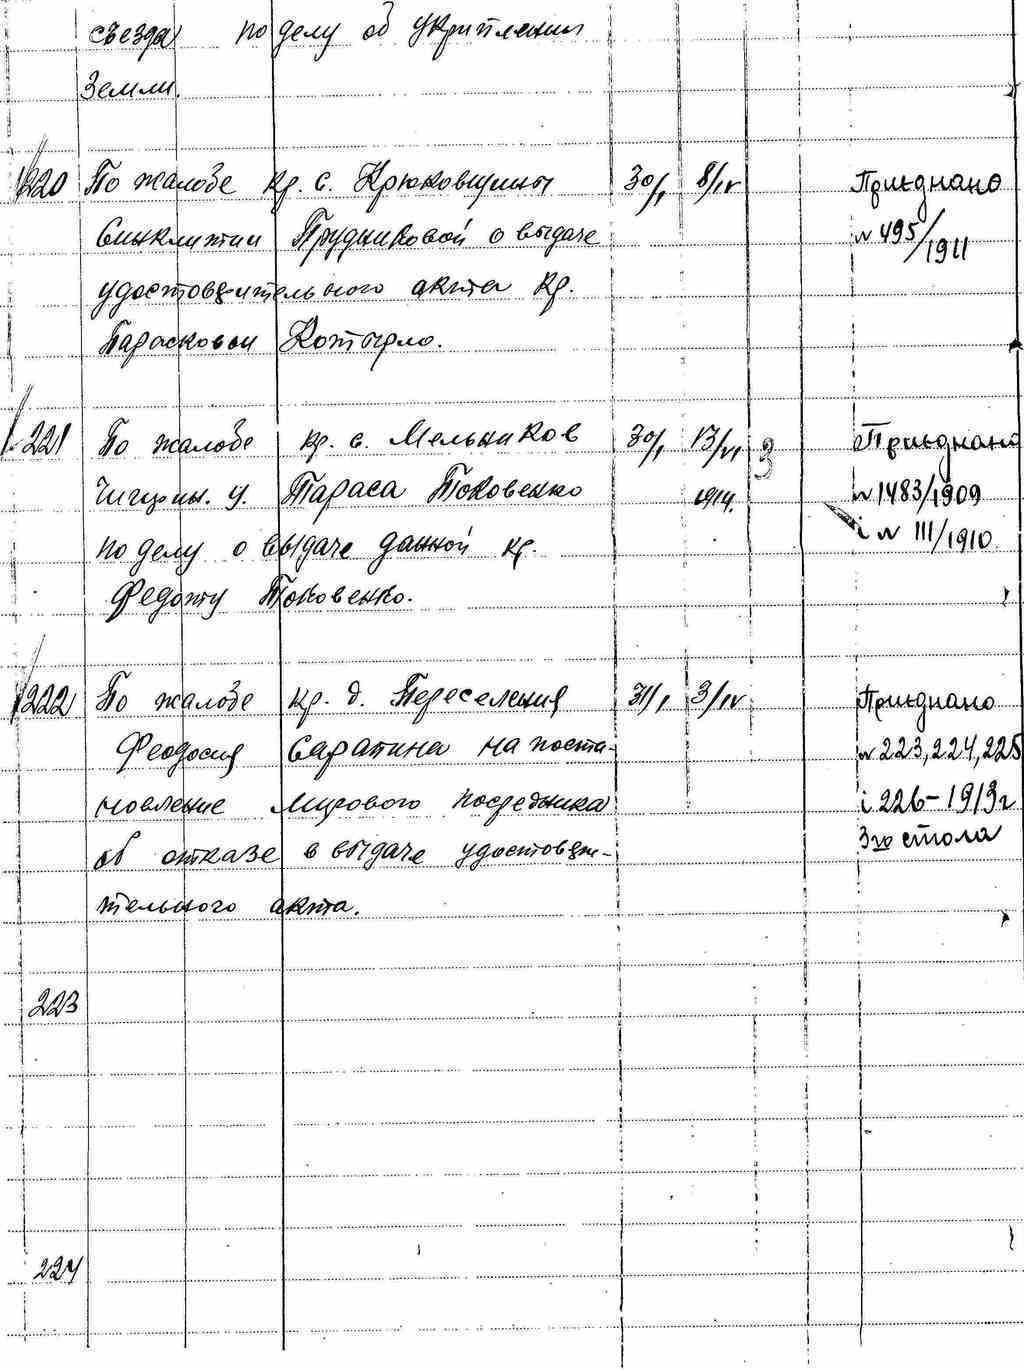 съезда по делу об укриплении
Земли.
220 По жалобе кр. с. Крюковщины 30/I 8/IV Приєднано
Синклитии Прудниковой о выдаче № 495/1911
удостоверительного акта кр.
Парасковьи Котырло.
221 По жалобе кр. с. Мельников 30/I 13/VI 3 Приєднано
Чигирин. у. Тараса Токовенко 1914. № 1483/1909
по делу о выдаче данной кр. і № 111/1910
Федоту Токовенко.
222 По жалобе кр. д. Переселения 31/I 3/IV Приєднано
Феодосия Саратина на поста- № 223, 224, 225
новление Мирового посредника і 226-1913 г
об отказе в выдаче удостовери- 3го стола
тельного акта.
223
224